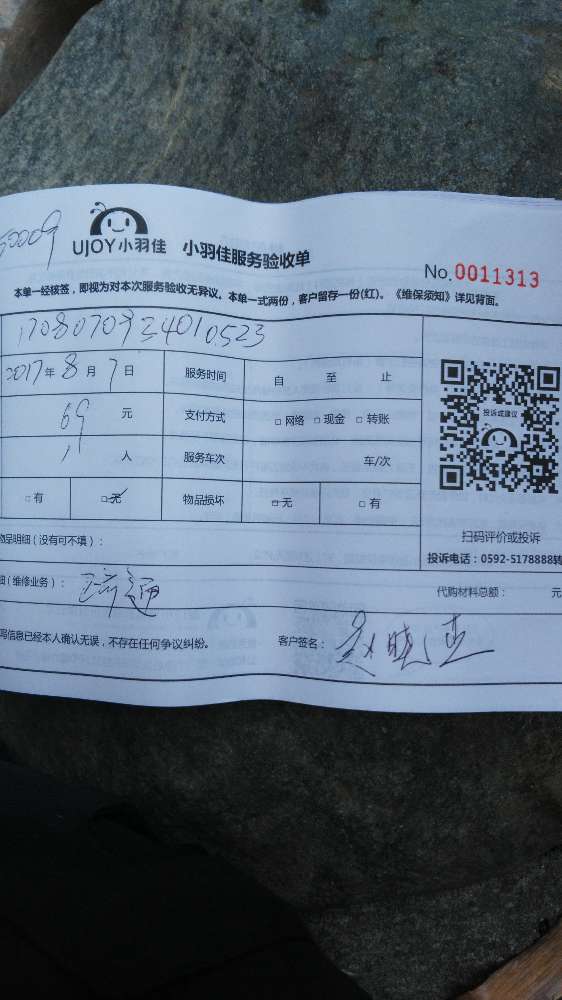 50009
UJOY小羽佳 小羽佳服务验收单
No.0011313
本单一经核签，即视为对本次服务验收无异议。本单一式两份，客户留存一份(红)。《维保须知》详见背面。
2017年8月7日 服务时间 自 至 止
69 元 支付方式 □网络 □现金 □转账
人 服务车次 车/次
□有 □无 物品损坏 □无 □有
投诉或建议
扫码评价或投诉
投诉电话：0592-5178888转
物品明细（没有可不填）：
细（维修业务）： 疏通 代购材料总额： 元
写信息已经本人确认无误，不存在任何争议纠纷。 客户签名：